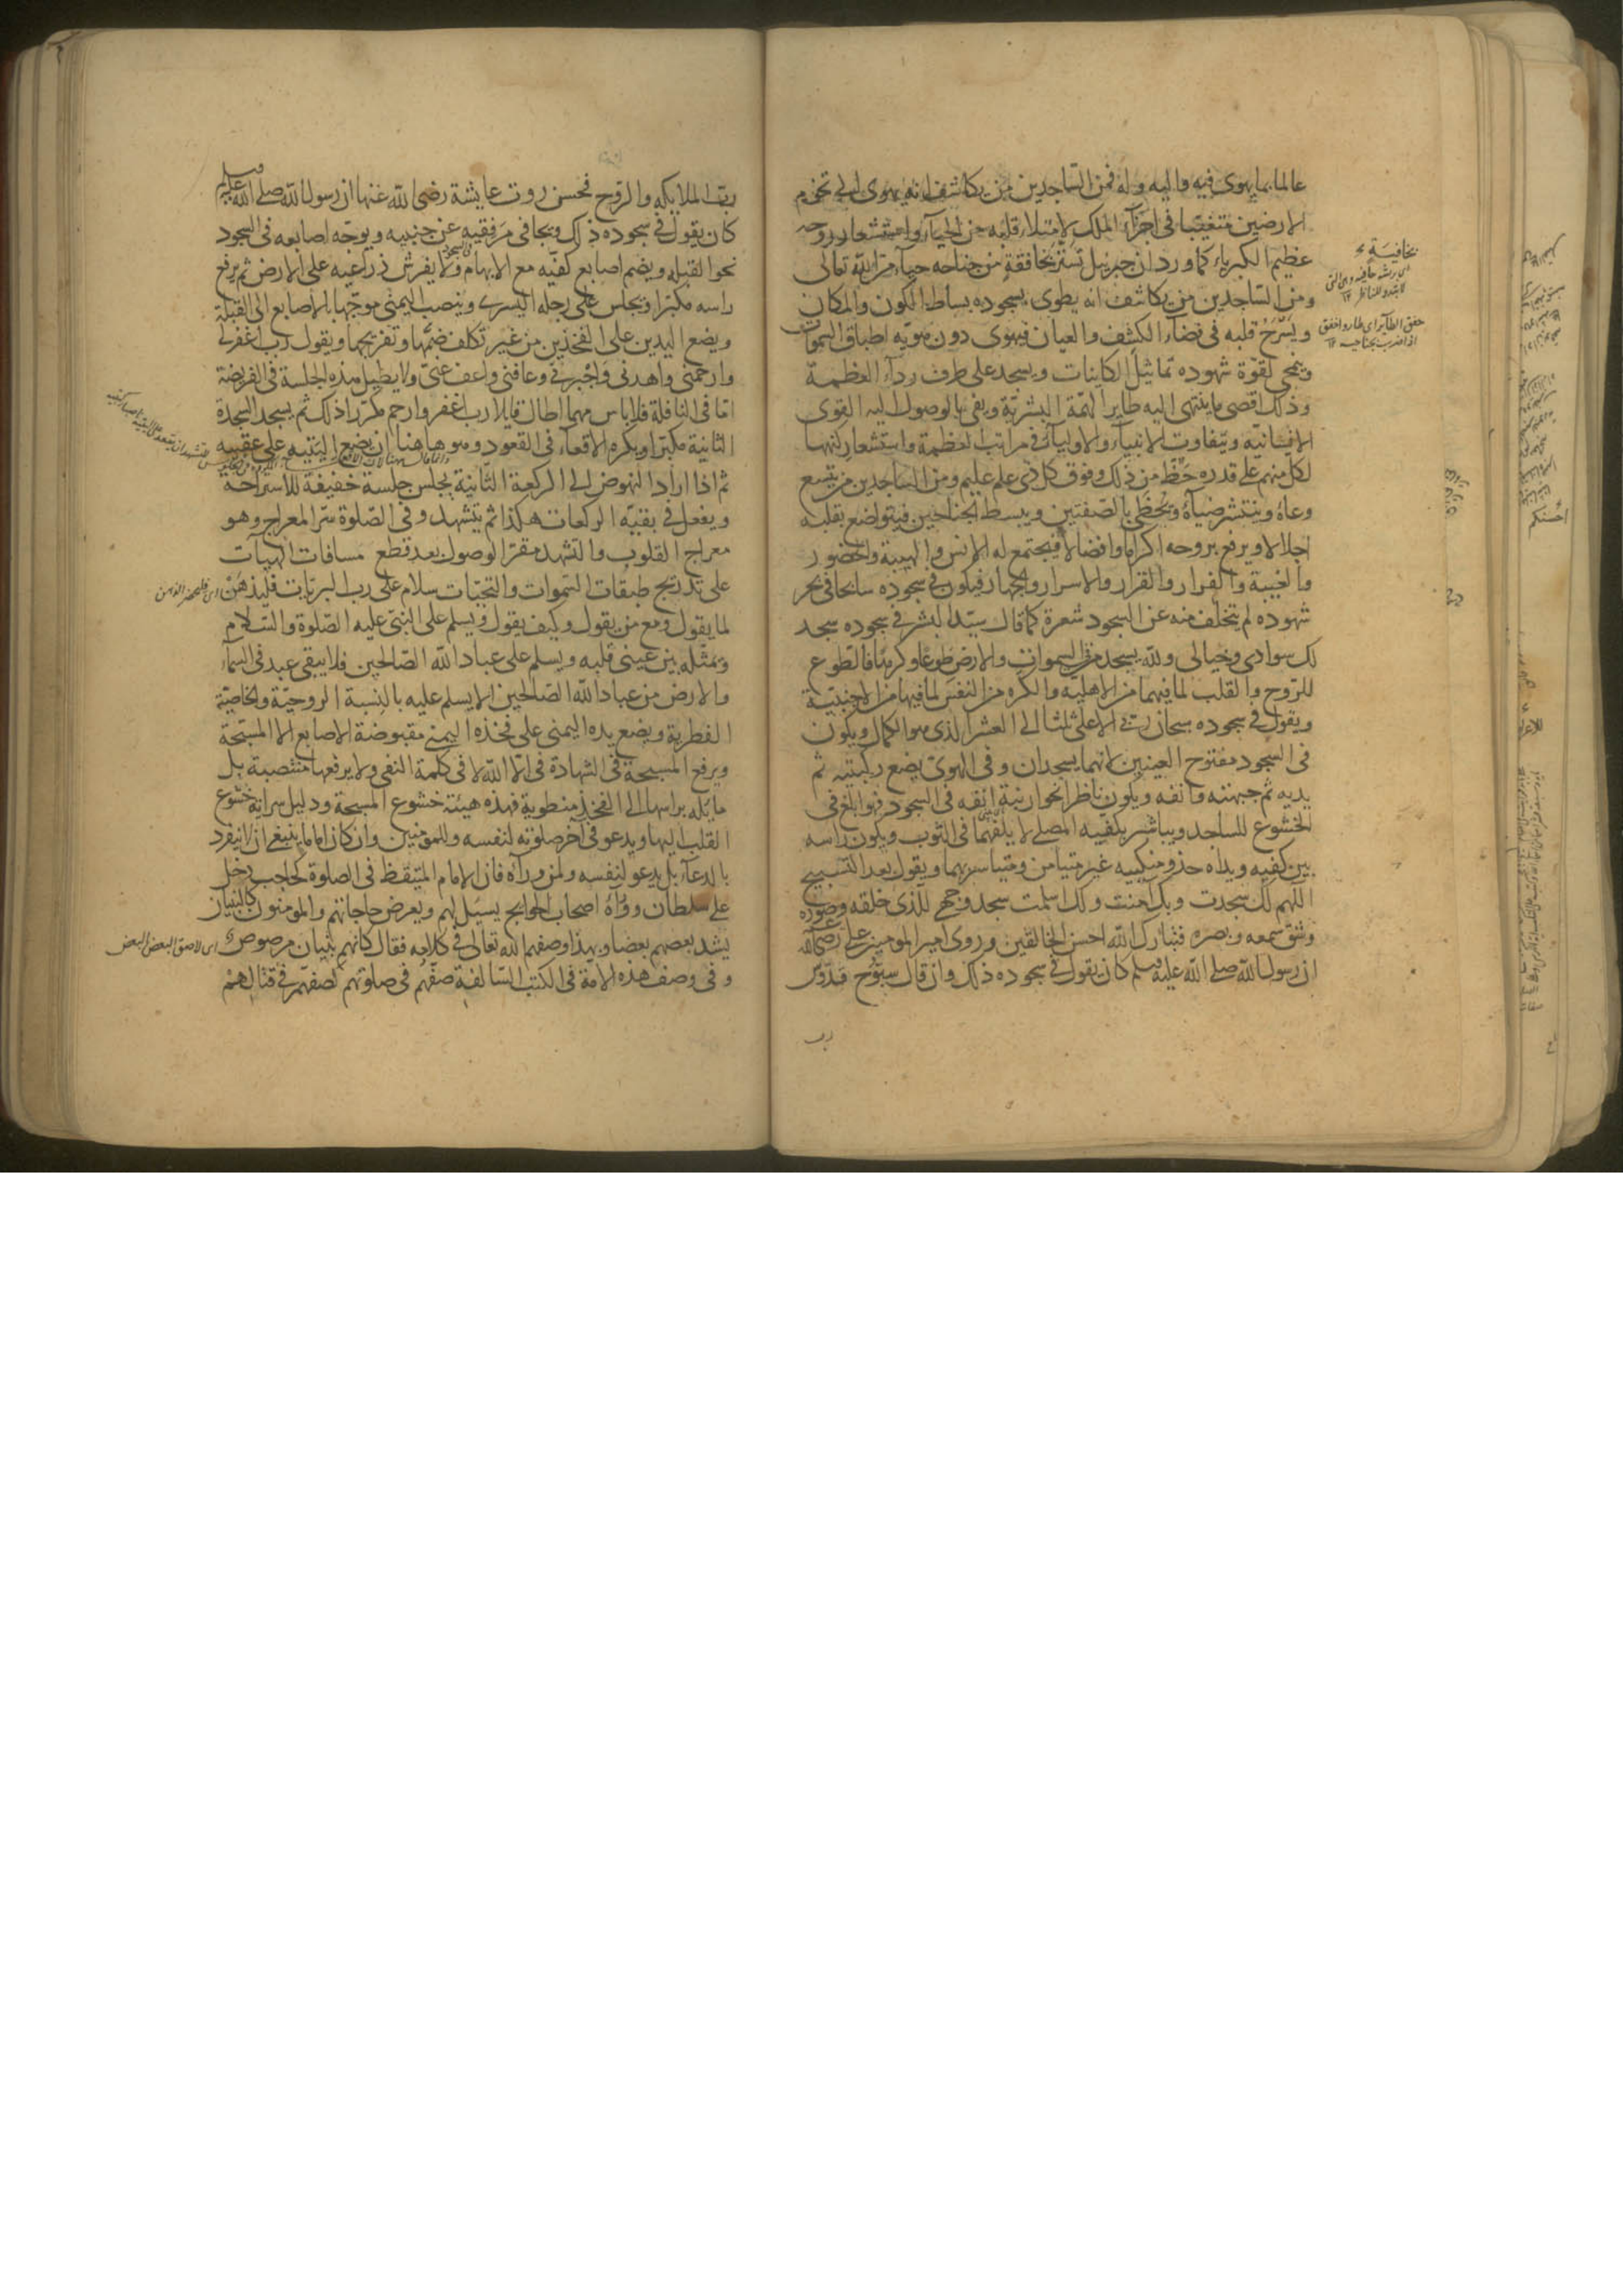 عالما بما يهوى فيه واليه وله فمن الساجدين من يكاشف انه يهوى الى تخوم
الارضين متغيبا فى اجزاء الملك لامتلاء قلبه من الحياء واستشعار روحه
عظيم الكبرياء كما ورد ان جبرئيل تستر بخافقة من جناحه حياء من الله تعالى
ومن الساجدين من يكاشف انه يطوى بسجوده بساط الكون والمكان
ويسرح قلبه فى فضاء الكشف والعيان فيهوى دون هويه اطباق السموات
ويتمحى لقوة شهوده تماثيل الكاينات ويسجد على طرف رداء العظمة
وذلك اقصى ما ينتهى اليه طاير الهمة البشرية ويفى بالوصول اليه القوى
الانسانية ويتفاوت الانبياء والاولياء فى مراتب العظمة واستشعار كنهها
لكل منهم على قدره حظ من ذلك وفوق كل ذى علم عليم ومن الساجدين من يتسع
وعاؤه وينتشر ضياؤه ويحظى بالصفتين ويبسط الجناحين فيتواضع بقلبه
اجلالا ويرفع بروحه اكراما وافضالا فيجتمع له الانس والهيبة والحضور
والغيبة والفرار والقرار والاسرار والجهار فيكون فى سجوده سابحا فى بحر
شهوده لم يتخلف منه عن السجود شعرة كما قال سيد البشر فى سجوده سجد
لك سوادى وخيالى ولله يسجد من فى السموات والارض طوعا وكرها فالطوع
للروح والقلب لما فيهما من الاهلية والكره من النفس لما فيها من الاجنبية
ويقول فى سجوده سبحان ربى الاعلى ثلثا الى العشر الذى هو الكمال ويكون
فى السجود مفتوح العينين لانهما يسجدان وفى الهوى يضع ركبتيه ثم
يديه ثم جبهته وانفه ويكون ناظرا نحو ارنبة انفه فى السجود فهو ابلغ فى
الخشوع للساجد ويباشر بكفيه المصلى لا يلفهما فى الثوب ويكون راسه
بين كفيه ويداه حذو منكبيه غير متيامن ومتياسر بهما ويقول بعد التسبيح
اللهم لك سجدت وبك آمنت ولك اسلمت سجد وجهى للذى خلقه وصوره
وشق سمعه وبصره فتبارك الله احسن الخالقين وروى امير المومنين على رضى الله عنه
ان رسول الله صلى الله عليه وسلم كان يقول فى سجوده ذلك وان قال سبوح قدوس
رب
بخافية
خفق الطاير اى طار واخفق
اذا ضرب بجناحيه ١٢
رب الملايكه والروح فحسن روت عايشة رضى الله عنها ان رسول الله صلى الله عليه وسلم
كان يقول فى سجوده ذلك ويجافى مرفقيه عن جنبيه ويوجه اصابعه فى السجود
نحو القبله ويضم اصابع كفيه مع الابهام ولا يفرش ذراعيه على الارض ثم يرفع
راسه مكبرا ويجلس على رجله اليسرى وينصب اليمنى موجها بالاصابع الى القبلة
ويضع اليدين على الفخذين من غير تكلف ضمها وتفريجها ويقول رب اغفر لى
وارحمنى واهدنى واجبرنى وعافنى واعف عنى ولا يطيل هذه الجلسة فى الفريضة
اما فى النافلة فلا باس مهما اطال قايلا رب اغفر وارحم مكررا ذلك ثم يسجد السجدة
الثانية مكبرا ويكره الاقعاء فى القعود وهو هاهنا ان يضع اليتيه على عقبيه
ثم اذا اراد النهوض الى الركعة الثانية يجلس جلسة خفيفة للاستراحة
ويفعل فى بقية الركعات هكذا ثم يتشهد وفى الصلوة سر المعراج وهو
معراج القلوب والتشهد مقر الوصول بعد قطع مسافات الهيات
على تدريج طبقات السموات والتحيات سلام على رب البريات فليذهن
لما يقول ومع من يقول وكيف يقول ويسلم على النبى عليه الصلوة والسلام
ويمثله بين عينى قلبه ويسلم على عباد الله الصالحين فلا يبقى عبد فى السماء
والارض من عباد الله الصالحين الا يسلم عليه بالنسبة الروحية والخاصية
الفطرية ويضع يده اليمنى على فخذه اليمنى مقبوضة الاصابع الا المسبحة
ويرفع المسبحة فى الشهادة فى الا الله لا فى كلمة النفى ولا يرفعها منتصبة بل
مايله براسها الى الفخذ منطوية فهذه هيئة خشوع المسبحة ودليل سراية خشوع
القلب اليها ويدعو فى آخر صلوته لنفسه وللمومنين وان كان اماما ينبغى ان لا ينفرد
بالدعاء بل يدعو لنفسه ولمن وراءه فان الامام المتيقظ فى الصلوة كحاجب دخل
على سلطان ووراءه اصحاب الحوايج يسئل لهم ويعرض حاجاتهم والمومنون كالبنيان
يشد بعضهم بعضا وبهذا وصفهم الله تعالى فى كلامه فقال كانهم بنيان مرصوص
وفى وصف هذه الامة فى الكتب السالفة صفهم فى صلوتهم كصفهم فى قتالهم
اى فليحضر الذهن
اى لاصق البعض البعض